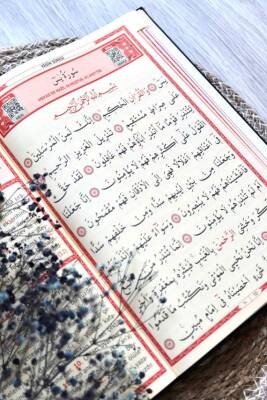 سُورَةُ يٰسٓ
بِسْمِ اللّٰهِ الرَّحْمٰنِ الرَّحٖيمِ
يٰسٓ وَالْقُرْاٰنِ الْحَكٖيمِ اِنَّكَ لَمِنَ الْمُرْسَلٖينَ
عَلٰى صِرَاطٍ مُسْتَقٖيمٍ تَنْزٖيلَ الْعَزٖيزِ الرَّحٖيمِ
لِتُنْذِرَ قَوْمًا مَٓا اُنْذِرَ اٰبَٓاؤُهُمْ فَهُمْ غَافِلُونَ لَقَدْ حَقَّ
الْقَوْلُ عَلٰٓى اَكْثَرِهِمْ فَهُمْ لَا يُؤْمِنُونَ اِنَّا جَعَلْنَا
فٖٓى اَعْنَاقِهِمْ اَغْلَالًا فَهِىَ اِلَى الْاَذْقَانِ فَهُمْ مُقْمَحُونَ
وَجَعَلْنَا مِنْ بَيْنِ اَيْدٖيهِمْ سَدًّا وَمِنْ خَلْفِهِمْ سَدًّا
فَاَغْشَيْنَاهُمْ فَهُمْ لَا يُبْصِرُونَ وَسَوَٓاءٌ عَلَيْهِمْ ءَاَنْذَرْتَهُمْ
اَمْ لَمْ تُنْذِرْهُمْ لَا يُؤْمِنُونَ اِنَّمَا تُنْذِرُ مَنِ اتَّبَعَ الذِّكْرَ
وَخَشِىَ الرَّحْمٰنَ بِالْغَيْبِ فَبَشِّرْهُ بِمَغْفِرَةٍ وَاَجْرٍ كَرٖيمٍ
اِنَّا نَحْنُ نُحْيِ الْمَوْتٰى وَنَكْتُبُ مَا قَدَّمُوا
شَىْءٍ اَحْصَيْنَاهُ فٖٓى اِمَامٍ مُبٖينٍ